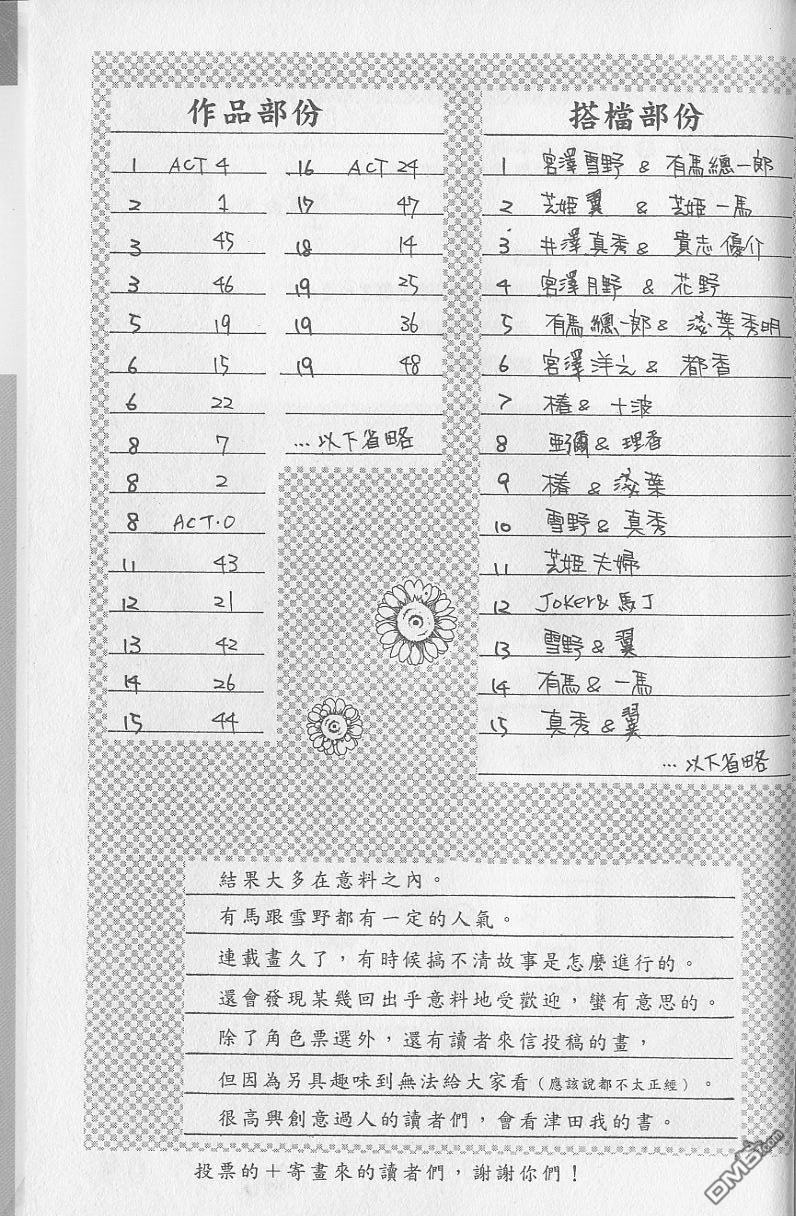 作品部份
1 ACT 4
2 1
3 45
3 46
5 19
6 15
6 22
8 7
8 2
8 ACT.0
11 43
12 21
13 42
14 26
15 44
16 ACT 24
17 47
18 14
19 25
19 36
19 48
…以下省略
搭檔部份
1 宮澤雪野 & 有馬總一郎
2 芝姬翼 & 芝姬一馬
3 井澤真秀 & 貴志優介
4 宮澤月野 & 花野
5 有馬總一郎 & 淺葉秀明
6 宮澤洋之 & 都香
7 椿 & 十波
8 亞彌 & 理香
9 椿 & 淺葉
10 雪野 & 真秀
11 芝姬夫婦
12 Joker & 馬丁
13 雪野 & 翼
14 有馬 & 一馬
15 真秀 & 翼
…以下省略
結果大多在意料之內。
有馬跟雪野都有一定的人氣。
連載畫久了，有時候搞不清故事是怎麼進行的。
還會發現某幾回出乎意料地受歡迎，蠻有意思的。
除了角色票選外，還有讀者來信投稿的畫，
但因為另具趣味到無法給大家看（應該說都不太正經）。
很高興創意過人的讀者們，會看津田我的書。
投票的＋寄畫來的讀者們，謝謝你們！
DM5.com